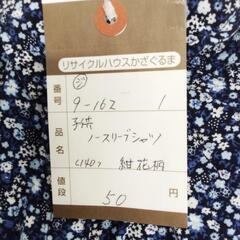 リサイクルハウスかざぐるま
ジ
番号 9-162 1
品名 子供
ノースリーブシャツ
(140) 紺花柄
値段 50円